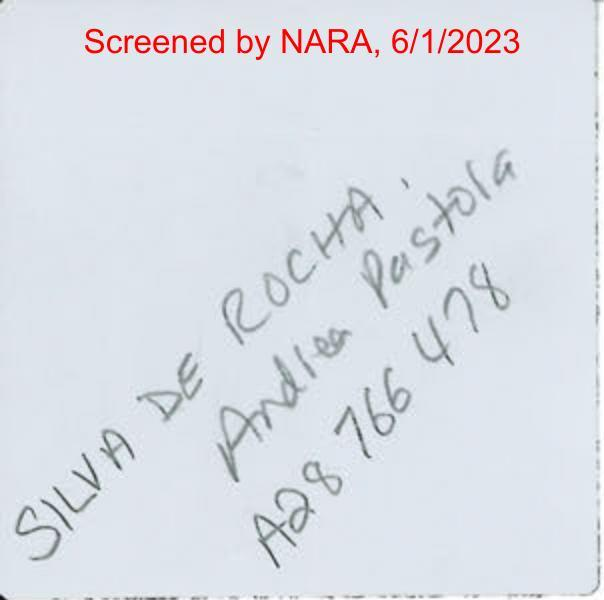 Screened by NARA, 6/1/2023
SILVA DE ROCHA.
Andrea Pastola
A28 766 478